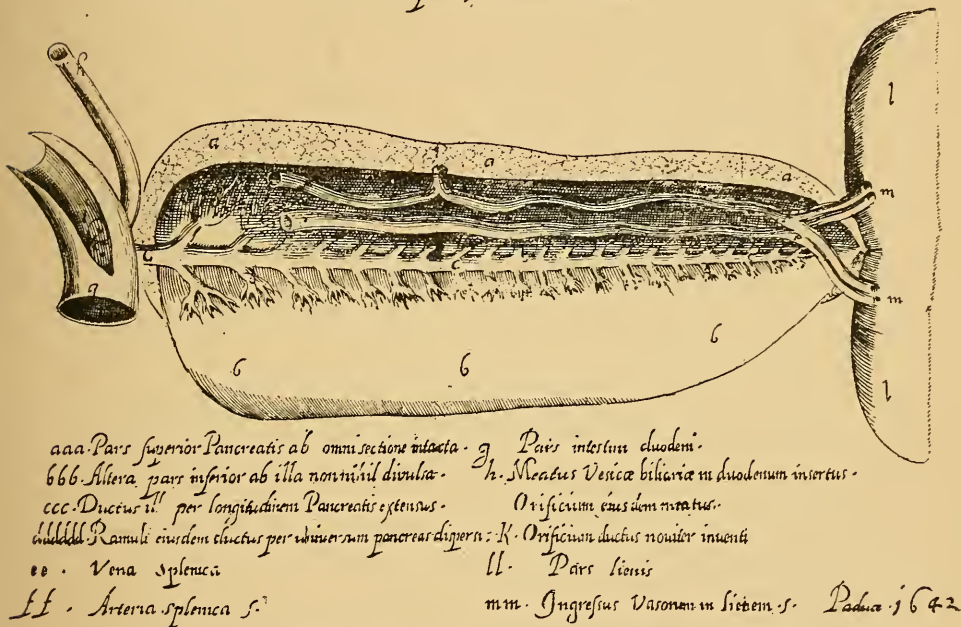 h
a
a
a
f
l
m
c
c
g
m
b
b
b
l
aaa. Pars superior Pancreatis ab omni sectione intacta.
bbb. Altera pars inferior ab illa nonnihil divulsa.
ccc. Ductus per longitudinem Pancreatis extensus.
dddddd. Ramuli eiusdem ductus per universum pancreas dispersi:
ee. Vena splenica
ff. Arteria splenica s.
g Pars intestini duodeni.
h. Meatus Vesicæ biliariæ in duodenum insertus.
Orificium eiusdem meatus.
K. Orificium ductus noviter inventi
ll. Pars lienis
mm. Ingressus Vasorum in lienem. s. Paduæ. 1642